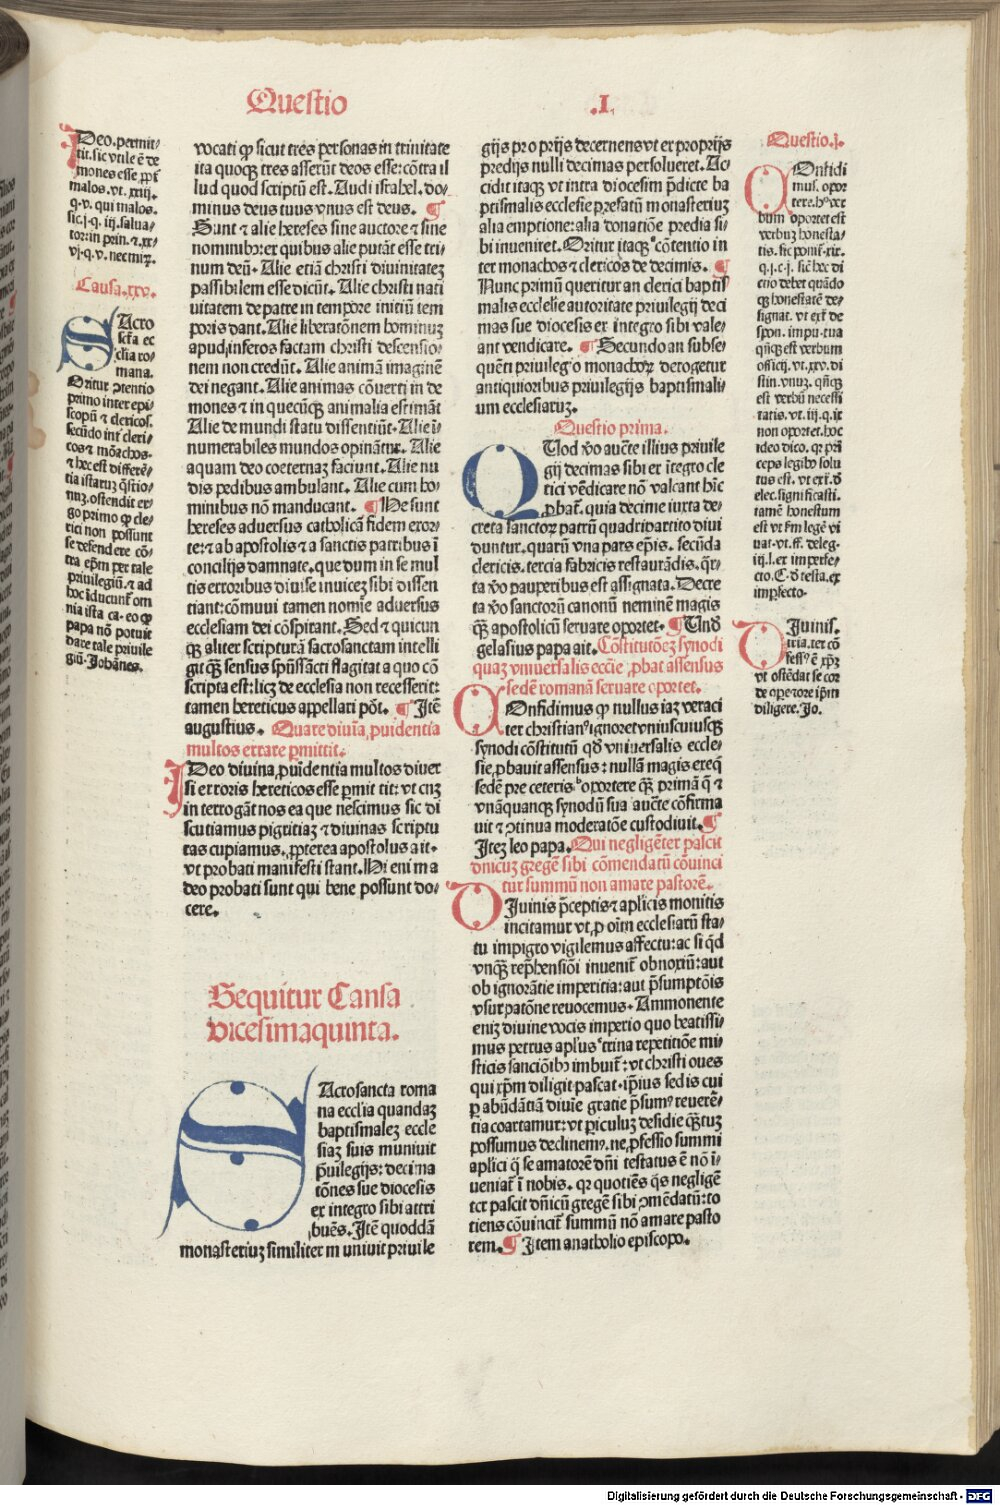 Questio
.I.
Deo.permit/
tit.sic vtile ē de
mones esse ꝓpꝉ
malos.vt.xxiij.
q.v.qui malos.
sic.j.q.iij.salua/
tor:in prin.⁊.xx/
vj.q.v.nec mirꝝ.
Causa.xxv.
SAcro
scā ec
clia ro/
mana.
Oritur ↄtentio
primo inter epi/
scopū ⁊ clericos.
secūdo inꝉ cleri/
cos ⁊ mōachos.
⁊ hec est differē/
tia istaruꝫ q̄stio/
nuꝫ.ostendit er/
go primo ꝙ cle/
rici non possunt
se defendere cō/
tra epm̄ per tale
priuilegiū.⁊ ad
hoc īducunꝉ om
nia ista ca.eo ꝙ
papa nō potuit
dare tale priuile
giū.Johānes.
vocati ꝙ sicut tres personas in trinitate
ita quoqꝫ tres asserūt deos esse:cōtra il
lud quod scriptū est.Audi israhel.do/
minus deus tuus vnus est deus. ¶
Sunt ⁊ alie hereses sine auctore ⁊ sine
nominibꝰ:ex quibus alie putāt esse tri/
num deū.Alie etiā christi diuinitateꝫ
passibilem esse dicūt.Alie christi nati
uitatem de patre in tempore initiū tem
poris dant.Alie liberatōnem hominuꝫ
apud inferos factam christi descensio/
nem non credūt.Alie animā imaginē
dei negant.Alie animas cōuerti in de
mones ⁊ in quecūqꝫ animalia estimāt
Alie de mundi statu dissentiūt.Alie ī/
numerabiles mundos opinātꝛ.Alie
aquam deo coeternaꝫ faciunt.Alie nu
dis pedibus ambulant.Alie cum ho/
minibus nō manducant. ¶ He sunt
hereses aduersus catholicā fidem exor/
te:⁊ ab apostolis ⁊ a sanctis patribus ī
concilijs damnate.que dum in se mul
tis erroribus diuise inuiceꝫ sibi dissen
tiant:cōmuni tamen nomīe aduersus
ecclesiam dei cōspirant.Sed ⁊ quicun
qꝫ aliter scripturā sacrosanctam intelli
git qꝫ̄ sensus spūssācti flagitat a quo cō
scripta est:licꝫ de ecclesia non recesserit:
tamen hereticus appellari pōt. ¶ Itē
augustius. Quare diuīa ꝓuidentia
multos errare ꝑmittit.
IDeo diuina ꝓuidentia multos diuer
si erroris hereticos esse ꝑmittit:vt cuꝫ
interrogāt nos ea que nescimus sic di
scutiamus pigritiaꝫ ⁊ diuinas scriptu
ras cupiamus.ꝓpterea apostolus ait.
vt probati manifesti siant.Hi eni ma
deo probati sunt qui bene possunt do/
cere.
Sequitur Causa
vicesimaquinta.
SAcrosancta roma
na ecclīa quandaꝫ
baptismaleꝫ eccle
siaꝫ suis muniuit
pͥuilegijs:decima
tōnes sue diocesis
ex integro sibi attri
buēs.Itē quoddā
monasteriuꝫ similiter muniuit priuile
gijs pro prijs decernens vt ex proprijs
predijs nulli decimas persolueret.Ac
cidit itaqꝫ vt intra diocesim p̄dicte ba
ptismalis ecclesie prefatū monasteriuꝫ
alia emptione:alia donatiōe predia si/
bi inueniret.Oritur itaqꝫ ᵃcōtentio in
ter monachos ⁊ clericos de decimis. ¶
Nunc primū queritur an clerici baptiſ
malis ecclesie autoritate priuilegij deci
mas sue diocesis ex integro sibi vale/
ant vendicare. ¶ Secundo an subse/
quēti priuilegio monachoꝝ derogetur
antiquioribus priuilegijs baptismali/
um ecclesiaruꝫ.
Questio prima.
QUod ꝟo aucte illius priuile
gij decimas sibi ex ītegro cle
rici vēdicare nō valeant hīc
ꝓbaꝉ.quia decime iuxta de/
creta sanctoꝝ patrū quadripartito diui
duntur.quarū vna pars epīs.secūda
clericis.tercia fabricis restaurādis.q̄r/
ta ꝟo pauperibus est assignata.Decre
ta ꝟo sanctorū canonū neminē magis
qꝫ̄ apostolicū seruare oportet. ¶ Unđ
gelasius papa ait. Cōstitutōeꝫ synodi
quaꝫ vniuersalis eccīe ꝓbat assensus
sedē romanā seruare oportet.
COnfidimus ꝙ nullus iaꝫ veraci
ter christianꝰ ignoret vniuscuiusqꝫ
synodi cōstitutū qđ vniuersalis eccle/
sie ꝓbauit assensus:nullā magis exeqͥ
sedē pre ceteris ᵇoportere qꝫ̄ primā q̄ ⁊
vnāquanqꝫ synodū sua aucte cōfirma
uit ⁊ ↄtinua moderatōe custodiuit. ¶
Iteꝫ leo papa. Qui negligēter pascit
dnicuꝫ gregē sibi cōmendatū cōuinci
tur summū non amare pastorē.
DIuinis p̄ceptis ⁊ aplicis monitis
incitamur vt ꝓ oīm ecclesiarū sta/
tu impigro vigilemus affectu:ac si qͥd
vnqꝫ̄ rep̄hensiōi inueniꝉ obnoxiū:aut
ob ignorātie imperitia:aut p̄sumptōis
vsurpatōne reuocemus.Ammonente
eniꝫ diuine vocis imperio quo beatissi/
mus petrus aplꝰus ᶜtrina repetitiōe mi/
sticis sanciōibꝰ imbuiꝉ:vt christi oues
qui xp̄m diligit pascat.ip̄ius sedis cui
ꝑ abūdātiā diuīe gratie p̄sumꝰ reuerē/
tia coartamur:vt ꝑiculuꝫ desidie qꝫ̄tuꝫ
possumus declinemꝰ.ne ꝓfessio summi
aplīci qͣ se amatorē dn̄i testatus ē nō ī/
ueniaꝉ ī nobis.qꝛ quotiēs qͥs negligē
ter pascit dn̄icū gregē sibi ↄmēdatū:to
tiens cōuinciꝉ summū nō amare pasto
rem. ¶ Item anatholio episcopo.
Questio.j.
COnfidi
mus.opor
tere.hoꝰ ver
bum oportet est
verbuꝫ honesta/
tis.sic ponit̄.xix.
q.j.c.j. sic hec di
ctio debet quādo
qꝫ honestatē de/
signat.vt exꝉ de
spon.impu.tua
qn̄qꝫ est verbum
officij.vt.xxv.di
stin.vnuꝫ.qn̄qꝫ
est verbū necessi
tatis.vt.iij.q.ix
non oportet.hoc
ideo dico.qꝛ prī
ceps legibꝰ solu
tus est.vt exꝉ.đ
elec.significasti.
tamē honestum
est vt ẜm legē vi
uat.vt.ff.de leg.
iij.l.ex imperfe/
cto.C.đ testa.ex
imp̄fecto.
DIuinis.
tria.ter cō
fessꝰ ē xp̄ꝫ
vt ostēdat se cor
de ope ⁊ ore ip̄m
diligere.Jo.
Digitalisierung gefördert durch die Deutsche Forschungsgemeinschaft - DFG